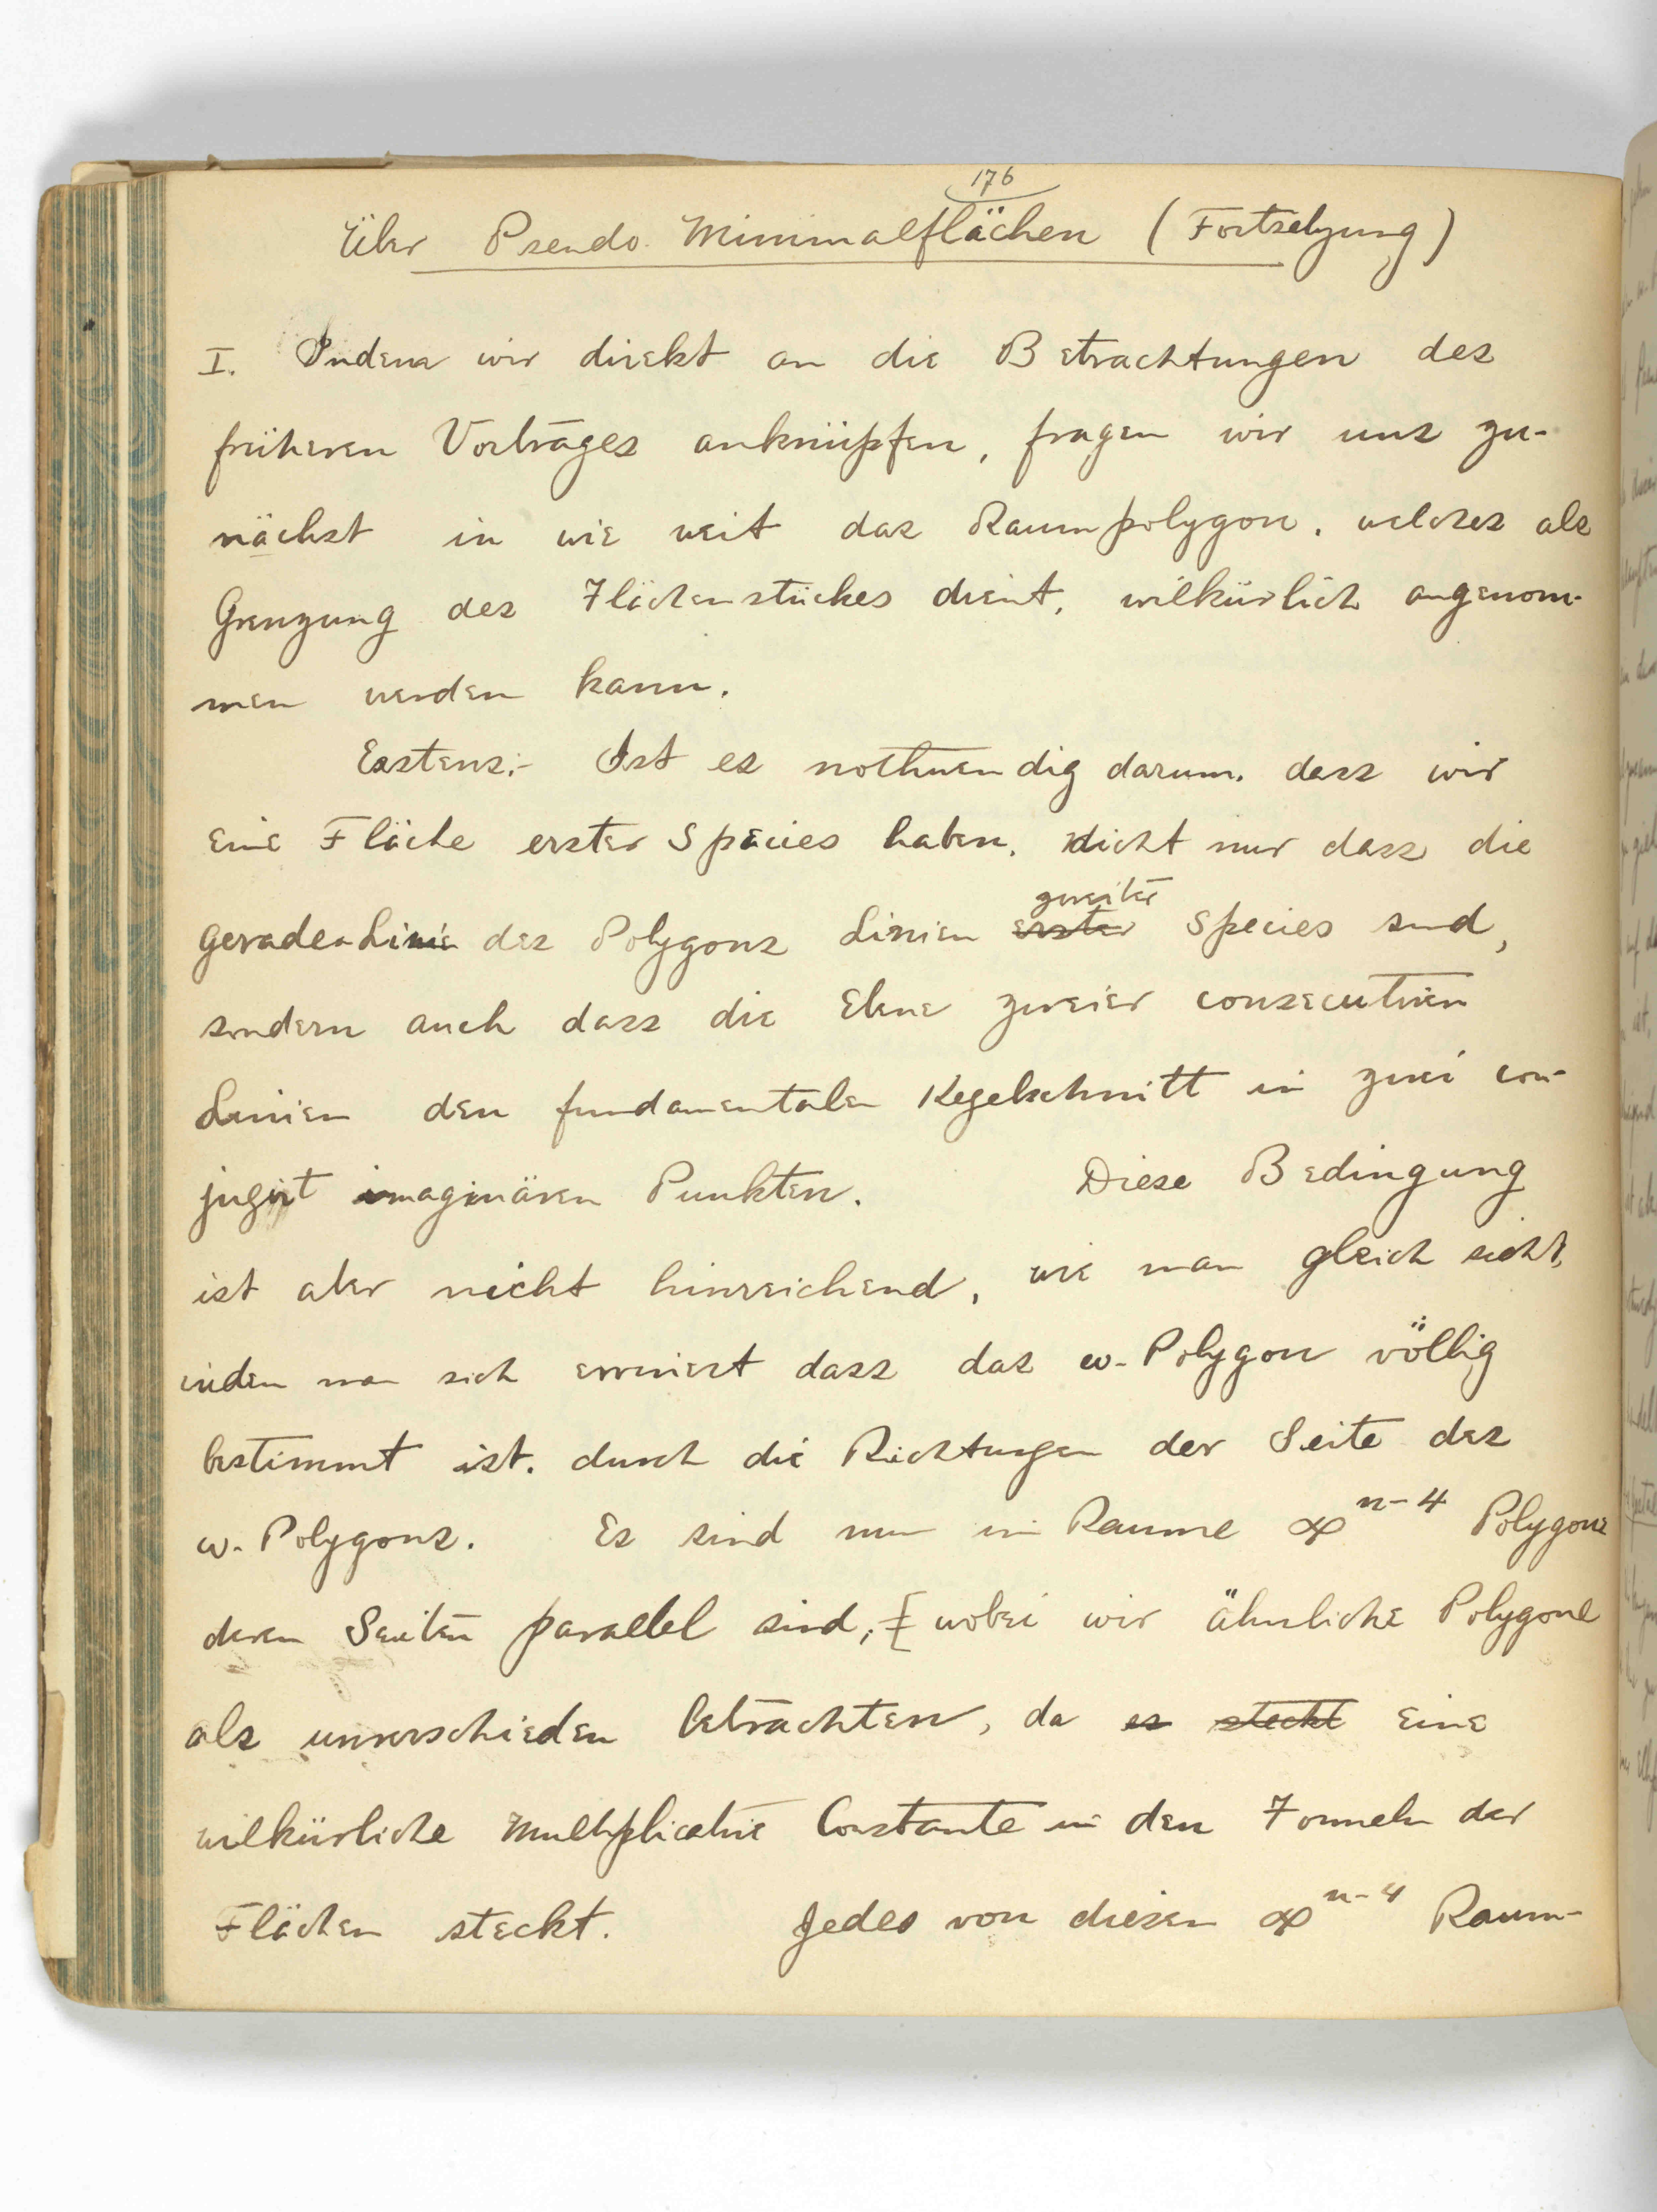 176
Über Pseudo. Minimalflächen (Fortsetzung)
I. Indem wir direkt an die Betrachtungen des
früheren Vortrages anknüpfen, fragen wir uns zu-
nächst in wie weit das Raumpolygon, welches als
Grenzung des Flächenstückes dient, wilkürlich angenom-
men werden kann.
Erstens:- Ist es nothwendig darum, dass wir
eine Fläche erster Species haben, nicht nur dass die
geraden Linien des Polygons Linien erster zweiter Species sind,
sondern auch dass die Ebene zweier consecutiven
Linien den fundamentalen Kegelschnitt in zwei con-
jugirt imaginären Punkten. Diese Bedingung
ist aber nicht hinreichend, wie man gleich sieht,
indem man sich erinnert dass das w-Polygon völlig
bestimmt ist, durch die Richtungen der Seite des
w-Polygons. Es sind nun im Raume ∞^n-4 Polygone
deren Seiten parallel sind, [wobei wir ähnliche Polygone
als unverschieden betrachten, da es steckt eine
wilkürliche multiplicative Constante in den Formeln der
Flächen steckt. Jedes von diesen ∞^n-4 Raum-